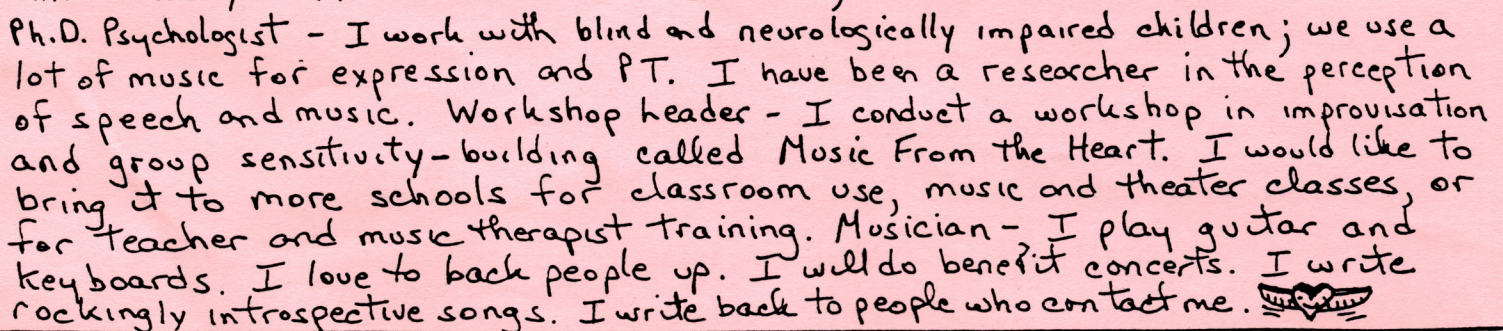 Ph.D. Psychologist - I work with blind and neurologically impaired children; we use a
lot of music for expression and PT. I have been a researcher in the perception
of speech and music. Workshop leader - I conduct a workshop in improvisation
and group sensitivity-building called Music From the Heart. I would like to
bring it to more schools for classroom use, music and theater classes, or
for teacher and music therapist training. Musician - I play guitar and
keyboards. I love to back people up. I will do benefit concerts. I write
rockingly introspective songs. I write back to people who contact me.